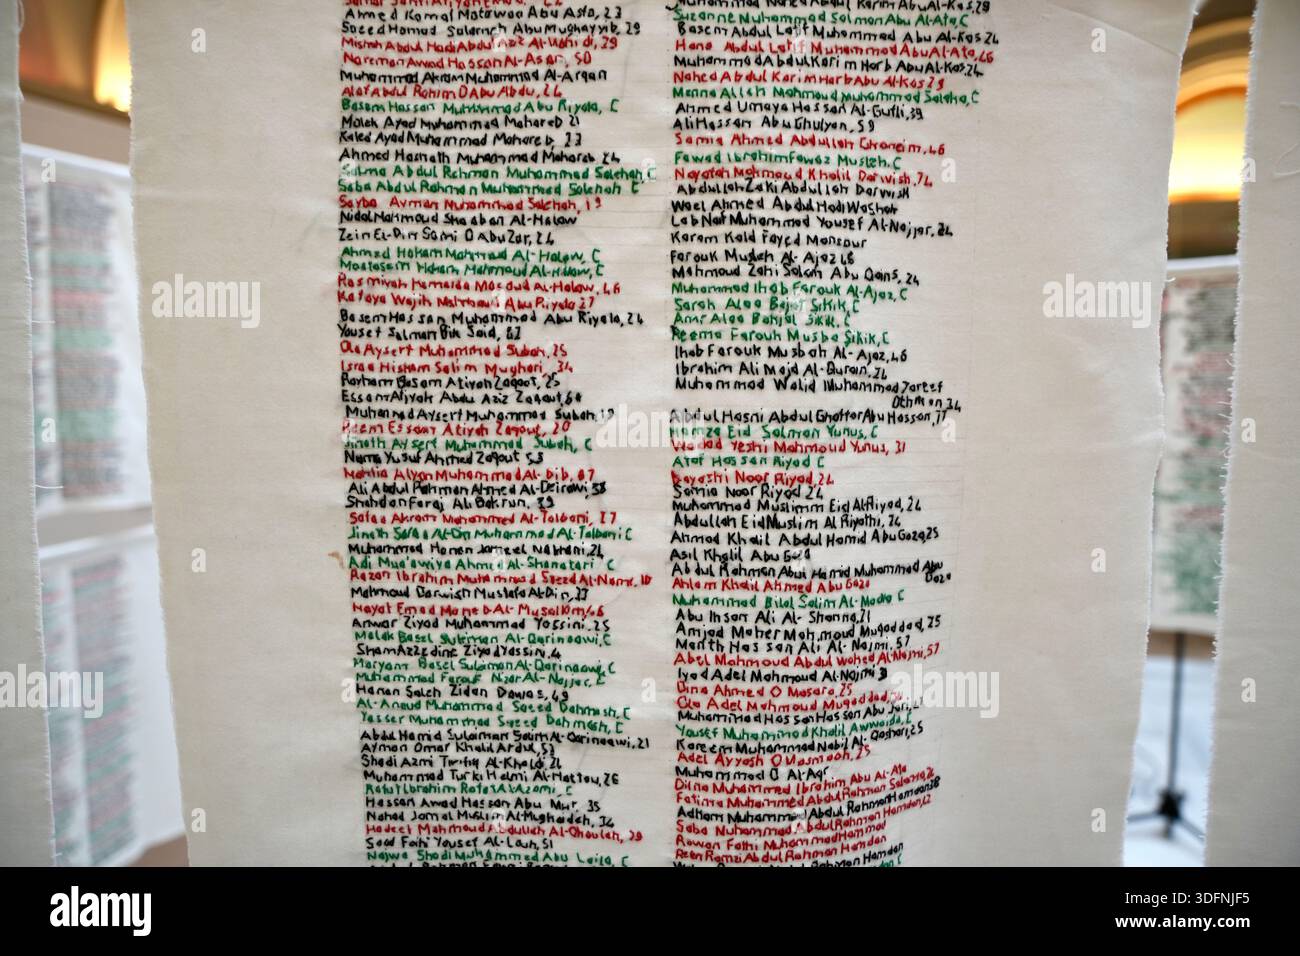 Ahmed Kamal Matawaa Abu Asta, 23
Saeed Hamad Salameh Abu Mughayyib, 29
Nareman Awad Hassan Al-Asar, 50
Muhammad Akram Muhammad Al-Arqan
Alaf Abdul Rahim D Abu Abdu, 26
Basem Hassan Muhammad Abu Riyala, C
Malek Ayad Muhammad Mahareb 21
Kaled Ayad Muhammad Mahareb, 23
Ahmed Hasnath Muhammad Mahareb, 24
Salma Abdul Rehman Muhammad Salehah, C
Saba Abdul Rahman Muhammad Salehah C
Sayba Ayman Muhammad Salehah, 19
Nidal Mahmoud Shaaban Al-Halaw
Zein El-Din Sami O Abu Zar, 24
Ahmed Hakam Mahmoud Al-Halaw, C
Moatasem Hakam Mahmoud Al-Halaw, C
Rasmiyah Hamaida Masoud Al-Halaw, 46
Kafaya Wajih Mahmoud Abu Riyala 27
Basem Hassan Muhammad Abu Riyala, 24
Yousef Salman Bik Said, 62
Ola Aysert Muhammad Subah, 25
Israa Hisham Salim Mughari, 34
Rayham Basam Atiyah Zaqout, 25
Essam Aliyah Abdu Aziz Zaqout, 60
Muhannad Aysert Muhammad Subah, 19
Reem Essam Atiyah Zaqout, 20
Jinath Aysert Muhammad Subah, C
Nama Yusuf Ahmed Zaqout 53
Mahlia Alyan Muhammad Al-Dib, 67
Ali Abdul Rahman Ahmed Al-Deirawi, 38
Shahdan Faraj Ali Bakrun, 39
Safaa Akram Mohammed Al-Talbani, 27
Jinath Safaa Al-Din Muhammad Al-Talbani C
Muhammad Hanan Jameel Nabhani, 24
Adi Mua'awiya Ahmed Al-Shanatari C
Razan Ibrahim Muhammad Saeed Al-Nams, 10
Mahmoud Darwish Mustafa Al-Din, 33
Hayat Emad Hamed Al-Musallam, 66
Anwar Ziyad Muhammad Yassini, 25
Malak Basel Suleiman Al-Qarinaawi, C
Sham Azzedine Ziyad Yassin, 4
Maryam Basel Sulaiman Al-Qarinaawi, C
Muhammad Farouf Nizar Al-Najjar, C
Hanan Saleh Zidan Dawas, 49
Al-Anoud Muhammad Saeed Dahmash, C
Yasser Muhammad Saeed Dahmash, C
Abdul Hamid Sulaiman Salim Al-Qarinaawi, 21
Ayman Omar Khalil Ardul, 53
Shadi Azmi Tawfiq Al-Khald, 26
Muhammad Turki Helmi Al-Hattou, 26
Rafut Ibrahim Rafat Al Azami, C
Hassan Awad Hassan Abu Mur, 35
Nahad Jamal Muslim Al-Mughadeh, 34
Hadeel Mahmoud Abdullah Al-Ghoulah, 29
Saad Fathi Yousef Al-Lauh, 51
Najwa Shadi Muhammad Abu Laila, C
Suzanne Muhammad Salman Abu Al-Ata, C
Basem Abdul Latif Muhammad Abu Al-Kas 24
Hana Abdul Latif Muhammad Abu Al-Ata, 46
Muhammad Abdul Karim Harb Abu Al-Kas, 24
Nahed Abdul Karim Harb Abu Al-Kas 29
Menna Allah Mahmoud Muhammad Saleha, C
Ahmed Umaya Hassan Al-Gufli, 39
Ali Hassan Abu Ghulyan, 59
Samia Ahmed Abdullah Ghoneim, 46
Fawad Ibrahim Fawaz Musleh, C
Nayafah Mahmoud Khalil Darwish, 74
Abdullah Zaki Abdullah Darwish
Wael Ahmed Abdul Hadi Washah
Lab Naif Muhammad Yousef Al-Najjar, 24
Karam Kald Fayed Mansour
Farouk Musleh Al-Ajaz 46
Mahmoud Zahi Salem Abu Qans, 24
Muhammad Ihab Farouk Al-Ajaz, C
Sarah Alaa Bajes Sikik, C
Amr Alaa Bahjal Sikik, C
Reema Farouk Musba Sikik, C
Ihab Farouk Musbah Al-Ajaz, 46
Ibrahim Ali Majd Al-Quran, 24
Muhammad Walid Muhammad Tareef
Othman, 34
Abdul Hasni Abdul Ghaffar Abu Hassan, 77
Hamza Eid Salman Yunus, C
Wadad Yeshi Mahmoud Yunus, 31
Ataf Hassan Riyad C
Bayashi Noor Riyad, 24
Samia Noor Riyad 24
Muhammad Muslimm Eid Al Riyad, 24
Abdullah Eid Muslim Al Riyathi, 24
Ahmad Khalil Abdul Hamid Abu Gaza, 25
Asil Khalil Abu Gaza
Abdul Rahman Abdul Hamid Muhammad Abu
Gaza
Ahlam Khalil Ahmed Abu Gaza
Muhammad Bilal Salim Al-Madha C
Abu Ihsan Ali Al-Shanna, 21
Amjad Maher Mahmoud Muqaddad, 25
Marith Hassan Ali Al-Najmi, 57
Abel Mahmoud Abdul Wahed Al-Najmi, 57
Iyad Adel Mahmoud Al-Najmi 3
Dina Ahmed O Masara, 25
Ola Adel Mahmoud Muqaddad,
Muhammad Hassan Hassan Abu
Yousef Muhammad Khalil Awwaida, C
Kareem Muhammad Nabil Al-Qashari, 25
Adel Ayyash O Masmaah, 25
Muhammad O Al-Aqr
Dilna Muhammad Ibrahim Abu Al-Ata
Fatima Muhammed Abdul Rahman Salama, 26
Adham Muhammad Abdul Rahman Hamdan 28
Saba Muhammad Abdul Rahman Hamdan, 12
Rawan Fathi Muhammad Hammad
Reen Ramzi Abdul Rahman Hamdan
alamy
Image ID: 3DFNJF5
www.alamy.com